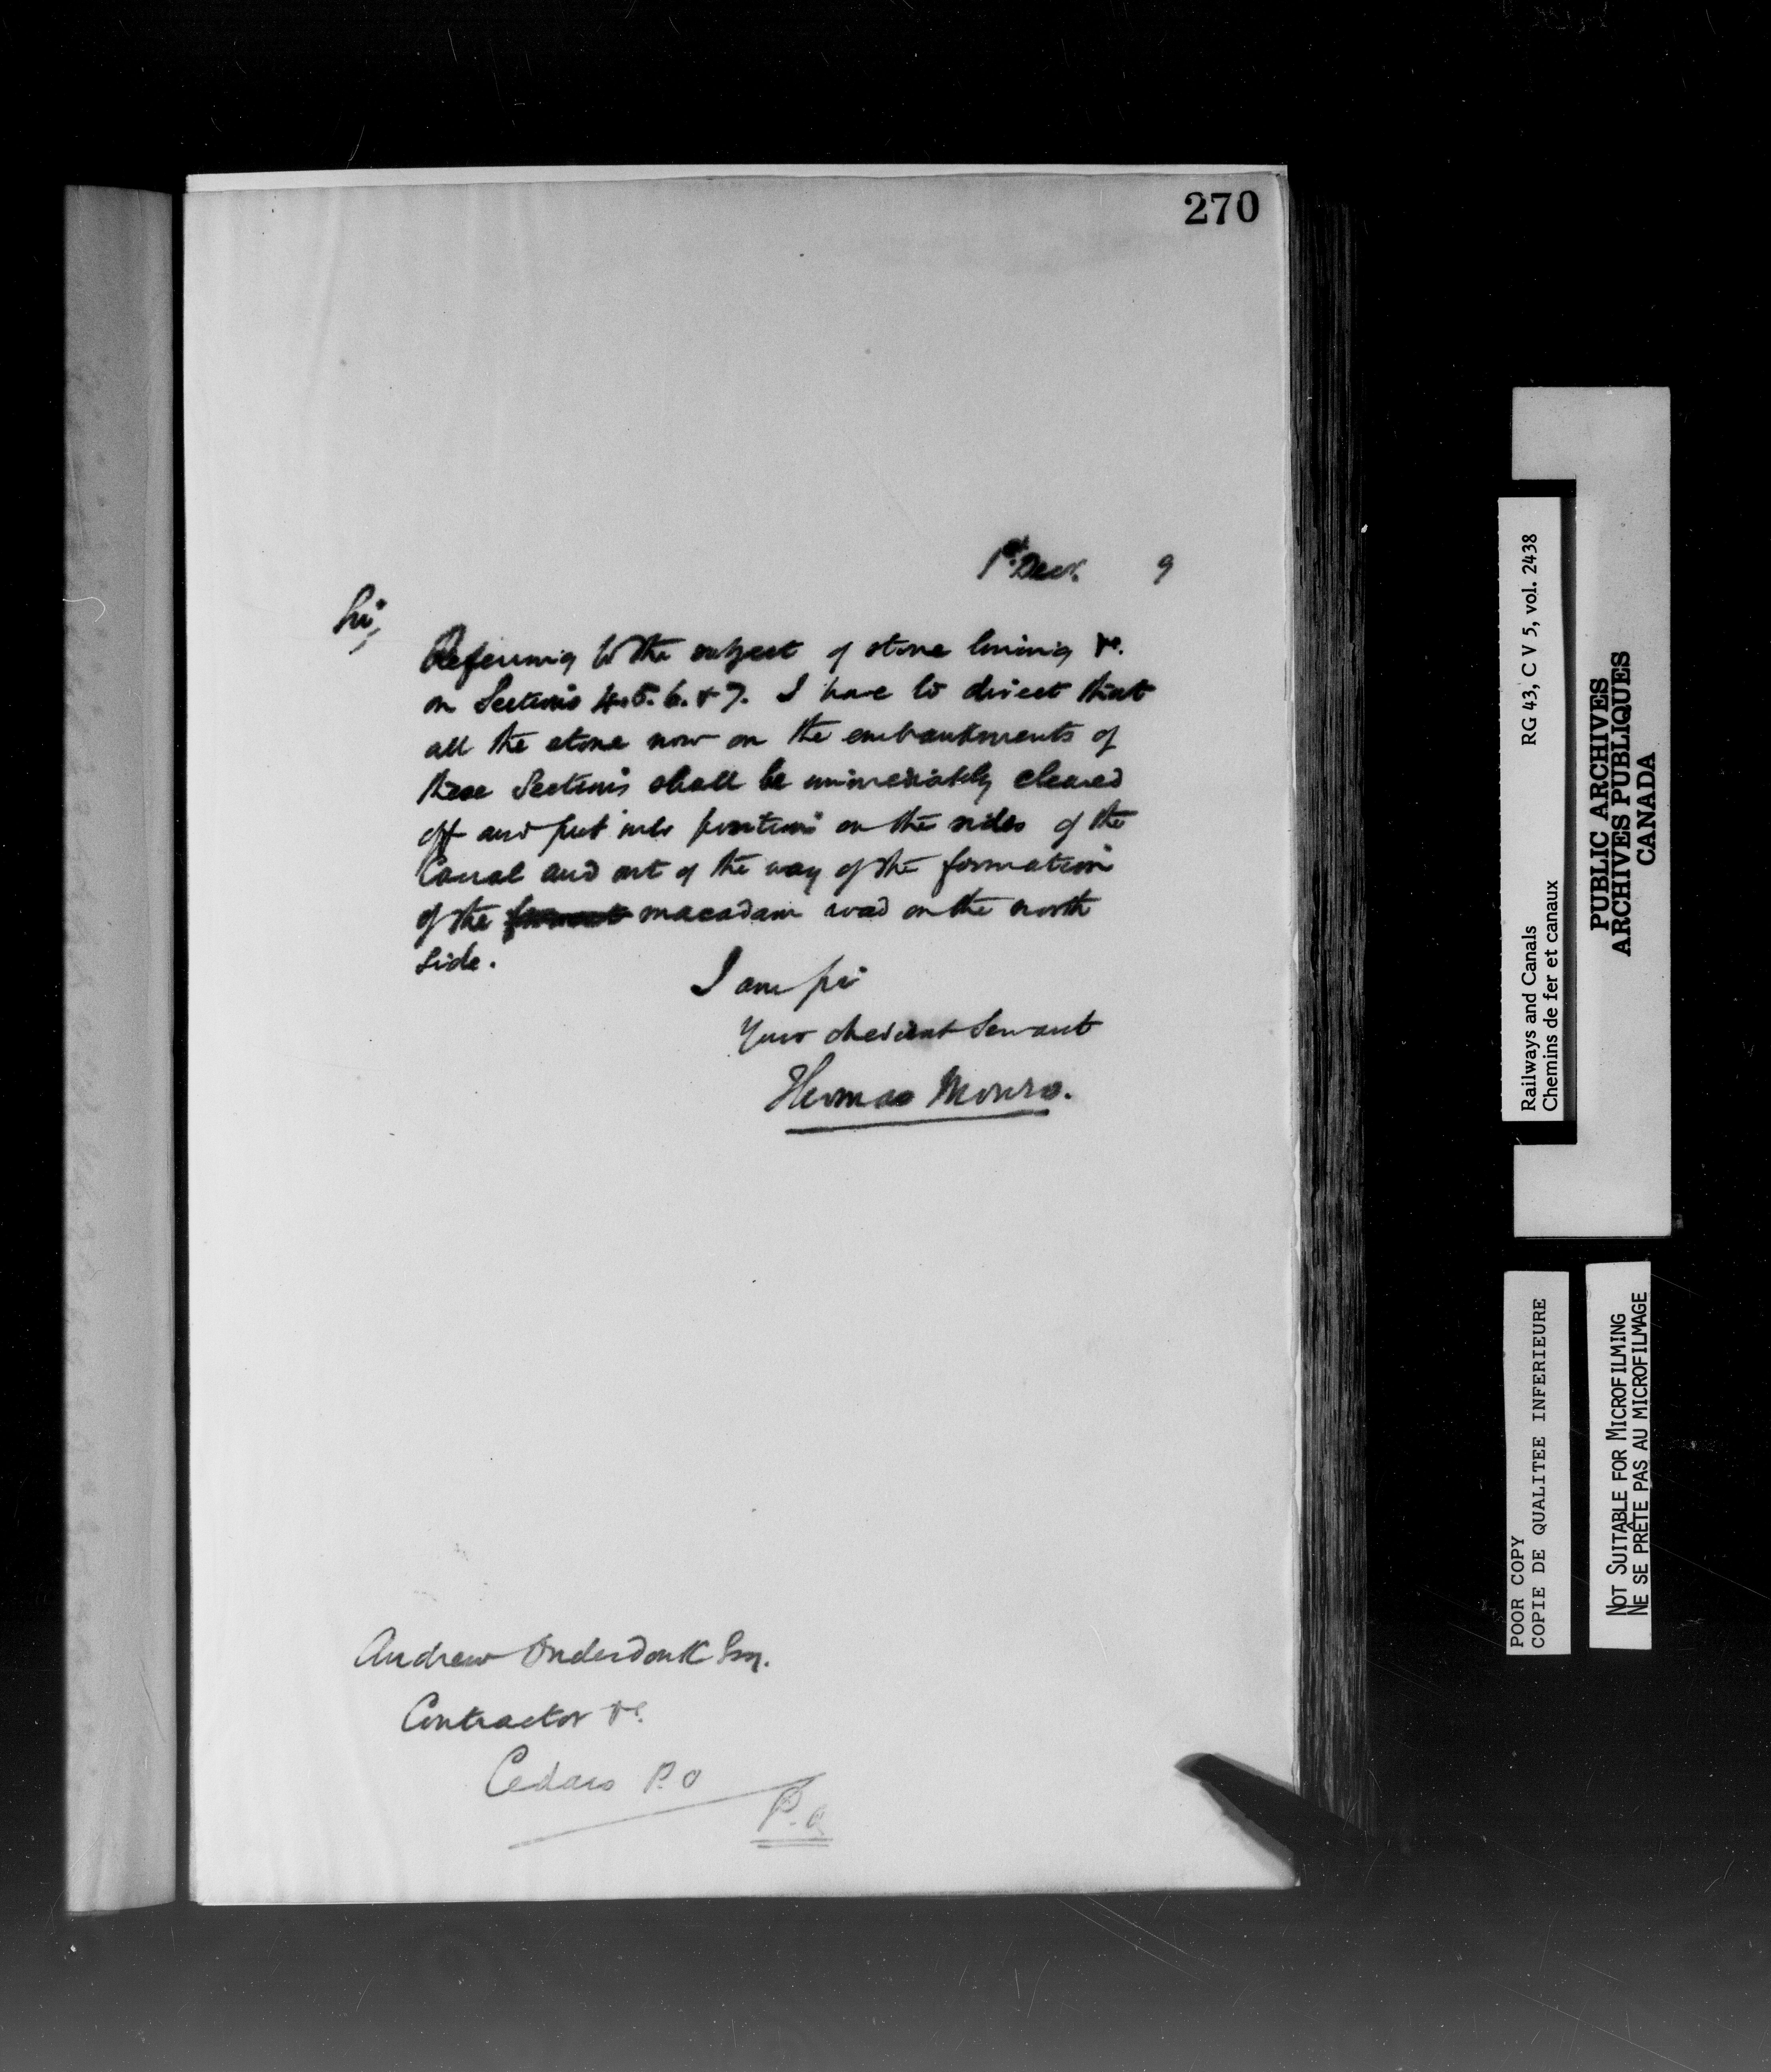 270
1st Decr. 9
Sir,
Referring to the subject of stone lining &c.
on Sections 4. 5. 6. & 7. I have to direct that
all the stone now on the embankments of
these Sections shall be immediately cleared
off and put into position on the sides of the
Canal and out of the way of the formation
of the macadam road on the north
side.
I am Sir
Your obedient Servant
Thomas Monro.
Andrew Onderdonk Esq.
Contractor &c.
Cedars P.O
P.Q
Railways and Canals RG 43, C V 5, vol. 2438
Chemins de fer et canaux
PUBLIC ARCHIVES
ARCHIVES PUBLIQUES
CANADA
POOR COPY
COPIE DE QUALITEE INFERIEURE
NOT SUITABLE FOR MICROFILMING
NE SE PRÊTE PAS AU MICROFILMAGE